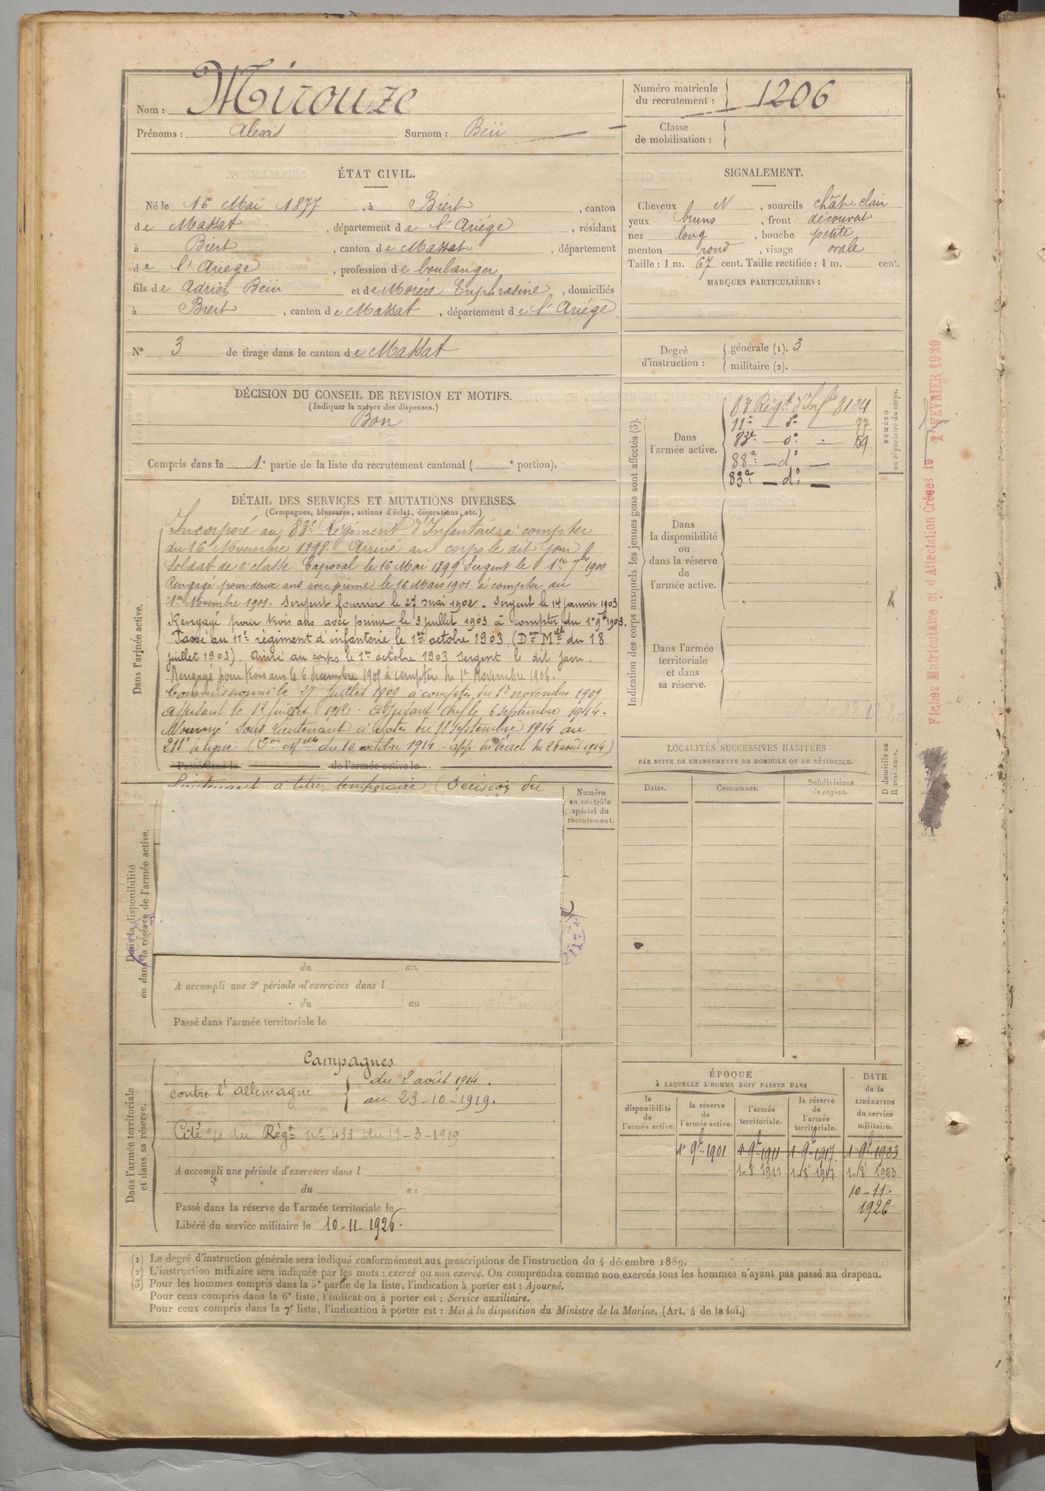 Nom : Mirouze
Prénoms : Alexis Surnom : Beü
Numéro matricule du recrutement : 1206
Classe de mobilisation :
ÉTAT CIVIL.
Né le 16 Mai 1877, à Biert, canton
de Massat, département de l'Ariège, résidant
à Biert, canton de Massat, département
de l'Ariège, profession de boulanger
fils de Adrien Beü et de Morère Euphrasine, domiciliés
à Biert, canton de Massat, département de l'Ariège
N° 3 de tirage dans le canton de Massat
SIGNALEMENT.
Cheveux N, sourcils chât clair
yeux bruns, front découvert
nez long, bouche petite
menton rond, visage ovale
Taille : 1 m. 67 cent. Taille rectifiée : 1 m. cent.
MARQUES PARTICULIÈRES :
Degré d'instruction : générale (1). 3
militaire (2).
DÉCISION DU CONSEIL DE REVISION ET MOTIFS.
(Indiquer la nature des dispenses.)
Bon
Compris dans la 1e partie de la liste du recrutement cantonal ( e portion).
DÉTAIL DES SERVICES ET MUTATIONS DIVERSES.
(Campagnes, blessures, actions d'éclat, décorations, etc.)
Dans l'armée active.
Incorporé au 83e Régiment d'Infanterie à compter
du 16 Novembre 1898. Arrivé au corps le dit jour
Soldat de 2e classe. Caporal le 16 Mai 1899 Sergent le 1er 7bre 1900
Rengagé pour deux ans avec prime le 16 Mars 1901 à compter du
1er Novembre 1901. Sergent fourrier le 27 mai 1902. Sergent le 14 janvier 1903
Rengagé pour trois ans avec prime le 3 juillet 1903 à compter du 1er 9bre 1903.
Passé au 11e régiment d'infanterie le 1er octobre 1903 (Don Mlle du 18
juillet 1903). Arrivé au corps le 1er octobre 1903 Sergent le dit jour.
Rengagé pour trois ans le 6 décembre 1905 à compter du 1er Novembre 1906.
Commissionné le 27 juillet 1909 à compter du 1er novembre 1909
Adjudant le 1912. Adjudant chef le 6 septembre 1914.
Nommé Sous Lieutenant à dater du septembre 1914 au
211e de ligne (Don Mlle du 10 octobre 1914 - app. du décret du 26 août 1914)
Passé dans la de l'armée active le
Lieutenant à titre temporaire (Décision du
Numéro au contrôle spécial du recrutement.
Dans la disponibilité ou dans la réserve de l'armée active.
du au
A accompli une 2e période d'exercices dans l
du au
Passé dans l'armée territoriale le
Dans l'armée territoriale et dans sa réserve.
Campagnes
contre l'Allemagne du 2 août 1914.
au 23-10-1919.
Cité o/o du Régt n° 433 du 19-3-1919
A accompli une période d'exercices dans l
du au
Passé dans la réserve de l'armée territoriale le
Libéré du service militaire le 10-11-1926.
Indication des corps auxquels les jeunes gens sont affectés (3).
NUMÉRO au répertoire du corps.
Dans l'armée active.
83 Régt d'Infie 8124
11e do 77
83e do 59
88e do
83e do
Dans la disponibilité ou dans la réserve de l'armée active.
Dans l'armée territoriale et dans sa réserve.
LOCALITÉS SUCCESSIVES HABITÉES
PAR SUITE DE CHANGEMENTS DE DOMICILE OU DE RÉSIDENCE.
Dates. Communes. Subdivisions de région. D domicile ou R résidence.
ÉPOQUE
À LAQUELLE L'HOMME DOIT PASSER DANS
DATE de la LIBÉRATION du service militaire.
la disponibilité de l'armée active. la réserve de l'armée active. l'armée territoriale. la réserve de l'armée territoriale.
1er 9bre 1901 1er 9bre 1911 1er 9bre 1917 1er 9bre 1923
1-8 1911 1-8 1917 1-8 1923
10-11-
1926
Fiches Matriculaire et d'Affectation Créées le 1er FÉVRIER 1920
(1) Le degré d'instruction générale sera indiqué conformément aux prescriptions de l'instruction du 4 décembre 1889.
(2) L'instruction militaire sera indiquée par les mots : exercé ou non exercé. On comprendra comme non exercés tous les hommes n'ayant pas passé au drapeau.
(3) Pour les hommes compris dans la 5e partie de la liste, l'indication à porter est : Ajourné.
Pour ceux compris dans la 6e liste, l'indication à porter est : Service auxiliaire.
Pour ceux compris dans la 7e liste, l'indication à porter est : Mis à la disposition du Ministre de la Marine. (Art. 4 de la loi.)